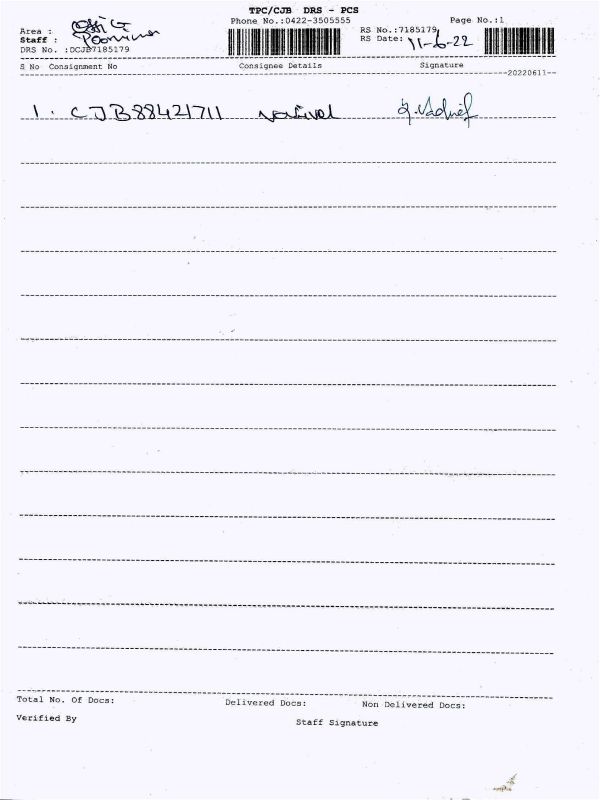 TPC/CJB DRS - PCS
Phone No.:0422-3505555
Page No.:1
Area : Office
Staff : Poornima
DRS No. :DCJB7185179
RS No.:7185179
RS Date: 11-6-22
S No Consignment No Consignee Details Signature
--20220611--
1. CJB88421711
Total No. Of Docs: Delivered Docs: Non Delivered Docs:
Verified By Staff Signature